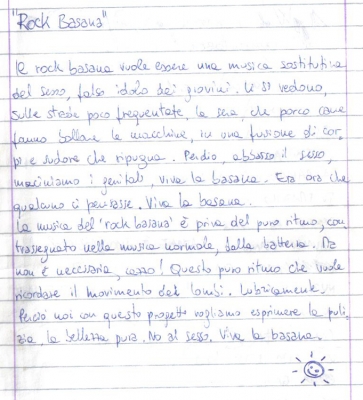 "Rock Basana"
Il rock basana vuole essere una musica sostitutiva
del sesso, falso idolo dei giovini. Li si vedono,
sulle strade poco frequentate, la sera, che porco cane
fanno ballare le macchine, in una fusione di cor
pi e sudore che ripugna. Perdio, abbasso il sesso,
maciniamo i genitali, viva la basana. Era ora che
qualcuno ci pensasse. Viva la basana.
La musica del "rock basana" è priva del puro ritmo, con
trassegnato nella musica normale, dalla batteria. Ma
non è necessaria, cazzo! Questo puro ritmo che vuole
ricordare il movimento dei lombi. Lubricamente.
Perciò noi con questo progetto vogliamo esprimere la puli
zia, la bellezza pura. No al sesso. Viva la basana.